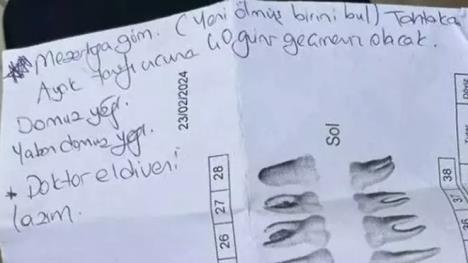 * Mezarlığa göm. (Yeni ölmüş birini bul) Tahtaka
Ayak tarafı ucuna 40 günü geçmemiş olacak.
Domuz yağı.
Yaban domuz yağı.
* Doktor eldiveni
lazım.
23/02/2024
Sol
28
27
26
38
37
36